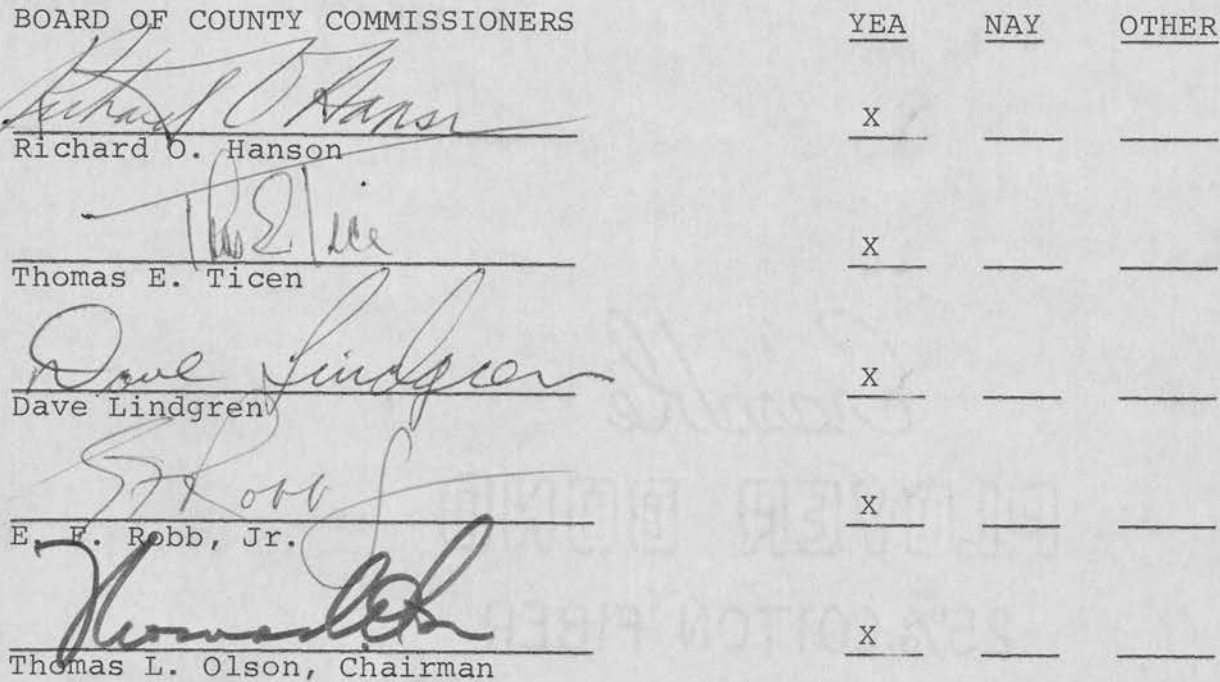 BOARD OF COUNTY COMMISSIONERS YEA NAY OTHER
Richard O Hanson
X
Richard O. Hanson
Thos E Tice
X
Thomas E. Ticen
Dave Lindgren
X
Dave Lindgren
E F Robb Jr
X
E. F. Robb, Jr.
Thomas L Olson
X
Thomas L. Olson, Chairman
25% COTTON FIBER